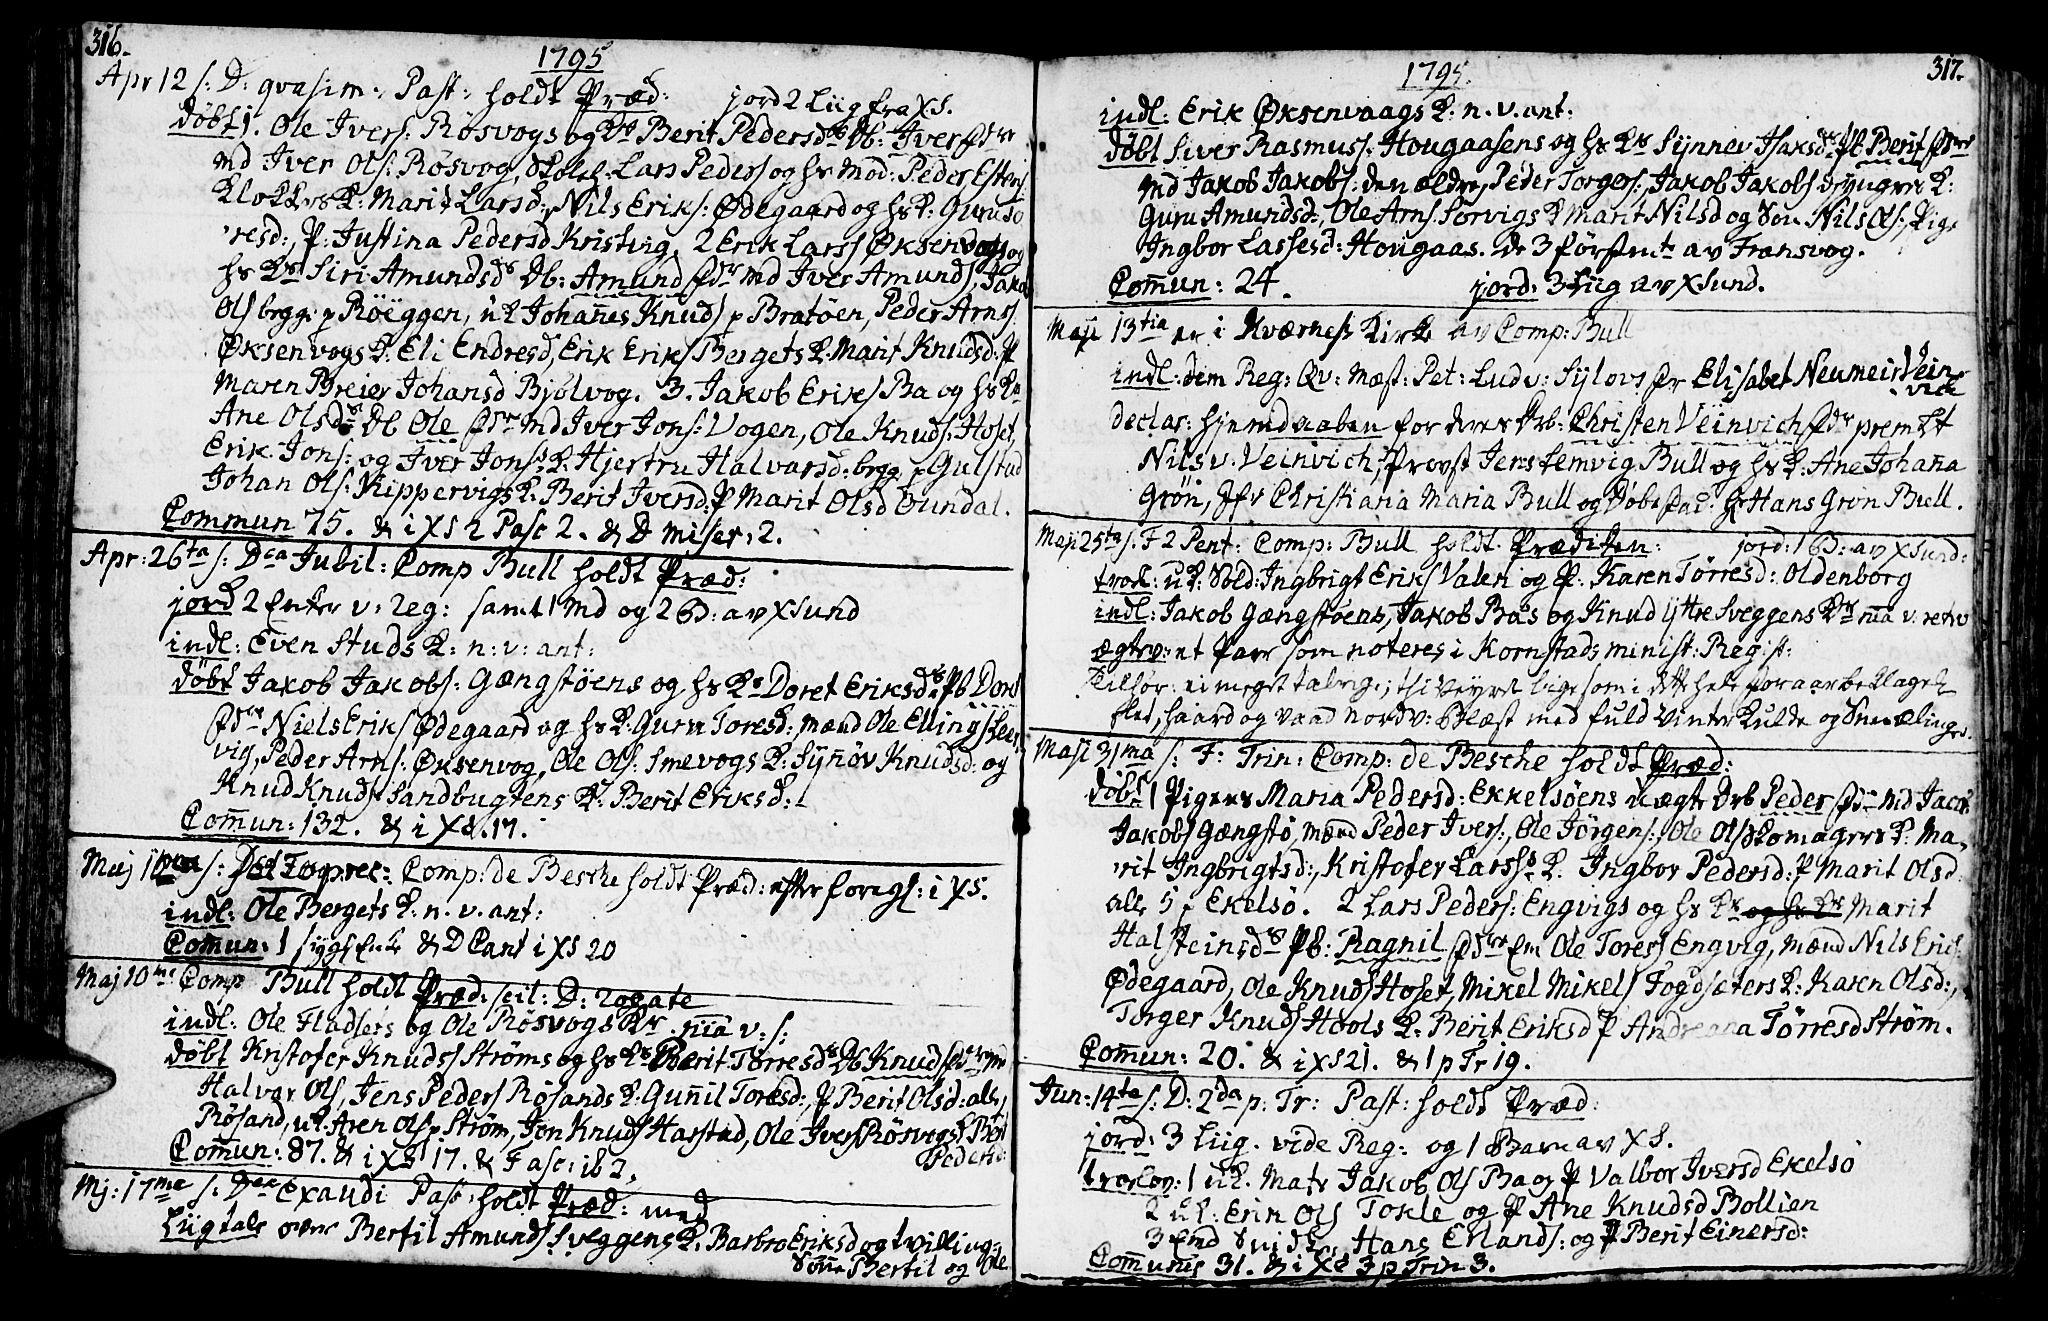 316.
1795
Apr 12 s: D: qvasim: Past: holdt Præd: jord 2 Liig fra XS.
døbt 1. Ole Ivers: Rösvogs og Kr Berit Pedersdrs Db: Iver fdr
md Iver Ols: Rösvog, Lars Peders og hs Mod: Peder Estens
Klokkers K: Marit Larsd:, Nils Eriks: Ødegaard og hs K: Guru To
resd:, P: Justina Pedersd Kristing, 2 Erik Larss Øksenvogs og
hs Kr Siri Amundsdr Db: Amund fdr md Iver Amunds, Jakob
Ols begge p Röeggen, uk Johannes Knuds p Bratöen, Peder Arns
Øksenvogs K: Eli Endresd, Erik Eriks Bergets K: Marit Knudsd: P
Maren Breier Johansd Bjölvog. 3. Jakob Eriks Ba og hs Kr
Ane Olsdrs Db Ole fdr md Iver Jons: Vogen, Ole Knuds: Hoset,
Erik Jons: og Iver Jonss K: Hjertru Halvarsd: begge p Gulstad
Johan Ols: Kippervigs K: Berit Iversd: P Marit Olsd Gundal.
Commun 75. & i XS 2 Pasc 2. & D miser. 2.
Apr: 26ta s: Dca Jubil: Comp Bull holdt Præd:
jord 2 Enker v: Reg: samt 1 Md og 2 B: av Xsund
indl: Even Studs K: n: v: ant:
døbt Jakob Jakobs: Gængstöens og hs Kr Doret Eriksdrs Pb Doret
fdr Niels Eriks Ødegaard og hs K: Guru Toresd: mænd Ole Ellings Leer
vig, Peder Arns: Øksenvog, Ole Ols: Smevogs K: Synnöv Knudsd: og
Knud Knuds Sandbugtens K: Berit Eriksd:
Comun: 132. & i XS. 17.
Maj s: Comp: de Besche holdt Præd: efter foregs: i XS.
indl: Ole Bergets K: n. v. ant:
Comun: 1 sygs & D Cant i XS 20
Maj 10me Comp Bull holdt Præd: seil: D: Rogate
indl: Ole Fladsets og Ole Rösvogs Kr nna v: s:
døbt Kristofer Knuds Ströms og hs Kr Berit Torresdrs Db Knud fdr md
Halvor Ols, Jens Peders Rösands K: Gunnil Toresd:, P Berit Olsd: alle
Rösand, uk Aren Ols p Ström, Jon Knuds Harstad, Ole Ivers Rösvogs K Berit
Pedersd:
Comun: 87. & i XS 17. & Fasc: ib 2.
Mj: 17me s: Dca Exaudi Past: holdt Præd: med
Liigtale over Bertil Amunds Sveggens K. Barbro Eriksd og tvilling:
Sönne Bertil og Ole
1795.
317.
indl: Erik Øksenvaags K: n. v. ant:
døbt Siver Rasmuss: Hougaasens og hs Kr Synnev Isaksdrs Pb Berit fdr
md Jakob Jakobs: den ældre, Peder Torgers:, Jakob Jakobs d: yngres K:
Guru Amundsd:, Ole Arns: Sorvigs K Marit Nilsd og Sön Nils Ols:, Pige
Ingbor Lassesd: Hougaas. de 3 förste av Fransvog.
Comun: 24. jord: 3 Liig av Xsund.
Maji 13tia er i Kværness Kirke av Comp: Bull
indl: dem Reg: Qv: Mæst: Pet: Ludv: Sylovs Fr Elisabet Neumeis Vein
vich
declar: hjemdaaben for deres Drb: Christen Veinvich fdr prem Lt
Nils v: Veinvich, Provst Jens Lemvig Bull og hs K: Ane Johanna
Grön, Jfr Christiana Maria Bull og Döbe fad: Hr Hans Grön Bull.
Maji 25ta s: F 2 Pent: Comp: Bull holdt Prædiken: jord: 1 B: av Xsund:
trol: uk: Sold: Ingbrigt Eriks Valen og P: Karen Törresd: Oldenborg
indl: Jakob Gængstöens, Jakob Bas og Knud Yttre Sveggens Kr nna v:
ægtev: et Parr som noteres i Kornstads minist: Regist:
Tilhör: ei meget talrige, thi Veyret lige som i dette hele foraar beklageli
flet, haard og vaad nordv: blæst med fuld Vinterkulde og Snee ælinger.
Maji 31ma s: F: Trin: Comp: de Besche holdt Præd:
döbt 1 Pigens Maria Pedersd: Ekkelsöens uægte Drb Peder fdr md Jacob
Jakobs Gængstö, mænd Peder Ivers:, Ole Jörgens:, Ole Ols Skomagers K: Ma,
rit Ingbrigtsd:, Kristofer Larss K. Ingbor Pedersd: P Marit Olsd:
alle 5 p Ekelsö. 2 Lars Peders: Engvigs og hs Kr og hs Kr Marit
Halsteinsdrs Pb: Ragnil fdr Em Ole Tores Engvig, mænd Nils Erics:
Ødegaard, Ole Knuds Hoset, Mikel Mikels Fogdsæters K: Karen Olsd:,
Torger Knuds Hools K: Berit Eriksd P Andreana Törresd Ström.
Comun: 20. & i XS 21. & 1 p Tr 19.
Jun: 14ta s: D: 2da p: Tr: Past: holdt Præd:
jord: 3 Liig. vide Reg: og 1 Barn av XS.
trolov: 1 uk. Matr Jakob Ols Ba og P Valbor Iversd Ekelsö
2 uk: Erin Ols Tokle og P Ane Knudsd Bollien
3 Emd Hans Erlands: og P Berit Einersd:
Comunes 31. & i XS 3 p Trin 3.